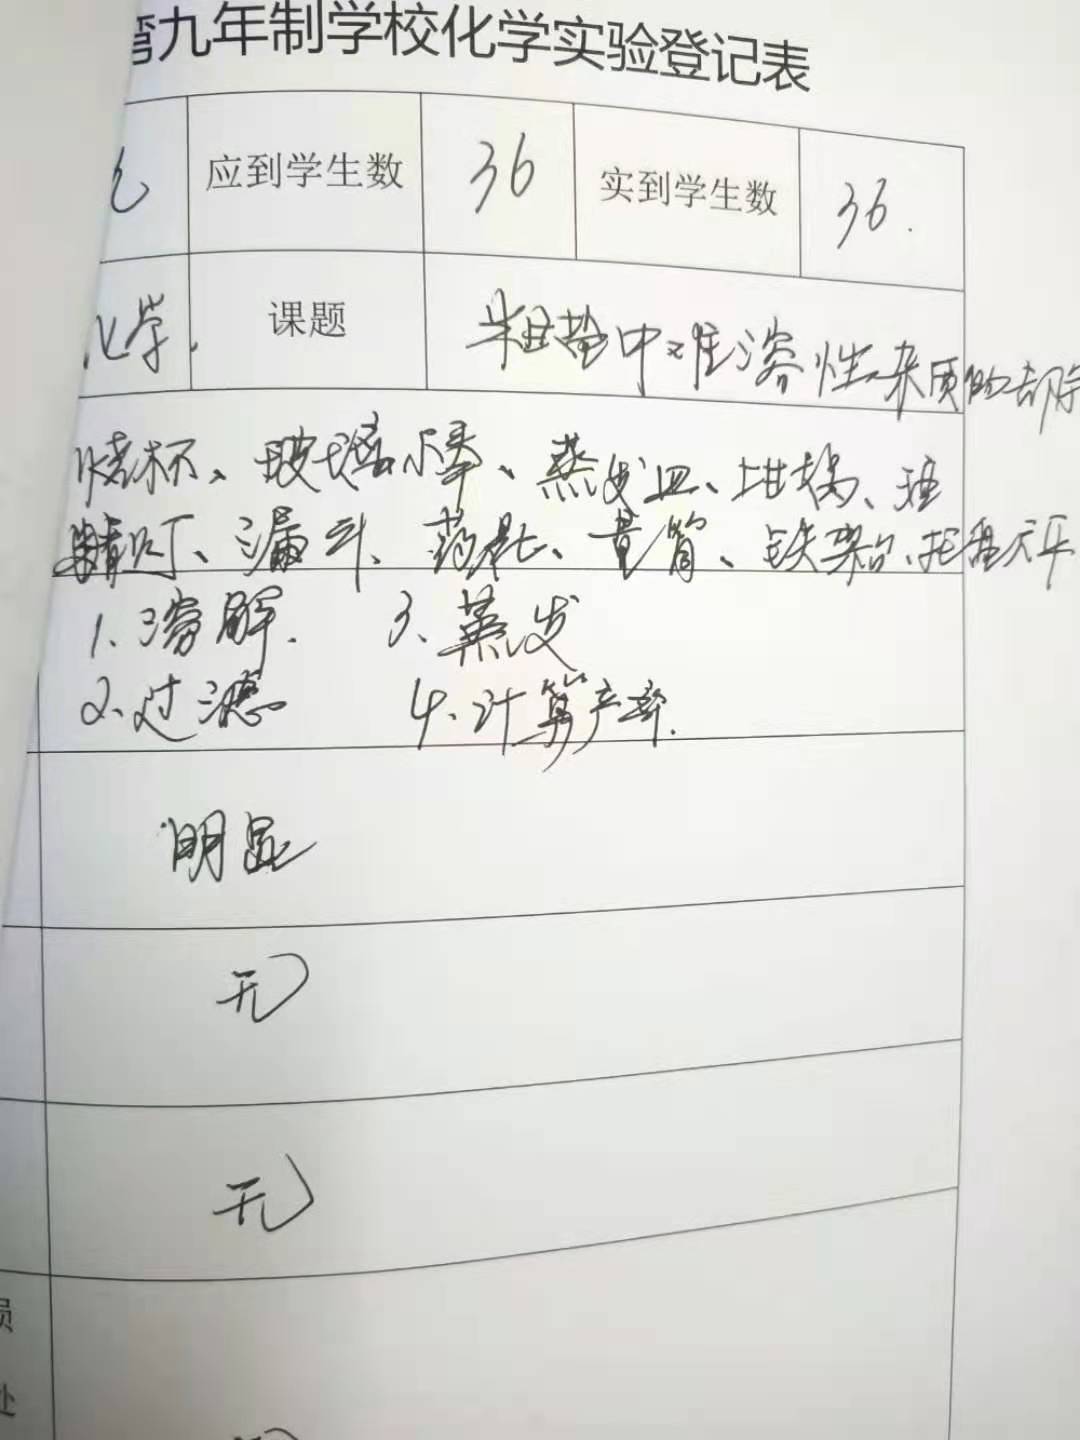 湾九年制学校化学实验登记表
应到学生数 36 实到学生数 36.
化学. 课题 粗盐中难溶性杂质的去除
烧杯、玻璃棒、蒸发皿、坩埚、酒
精灯、漏斗、药匙、量筒、铁架台、托盘天平
1、溶解. 3、蒸发
2、过滤 4、计算产率.
明显
无
无
损
处